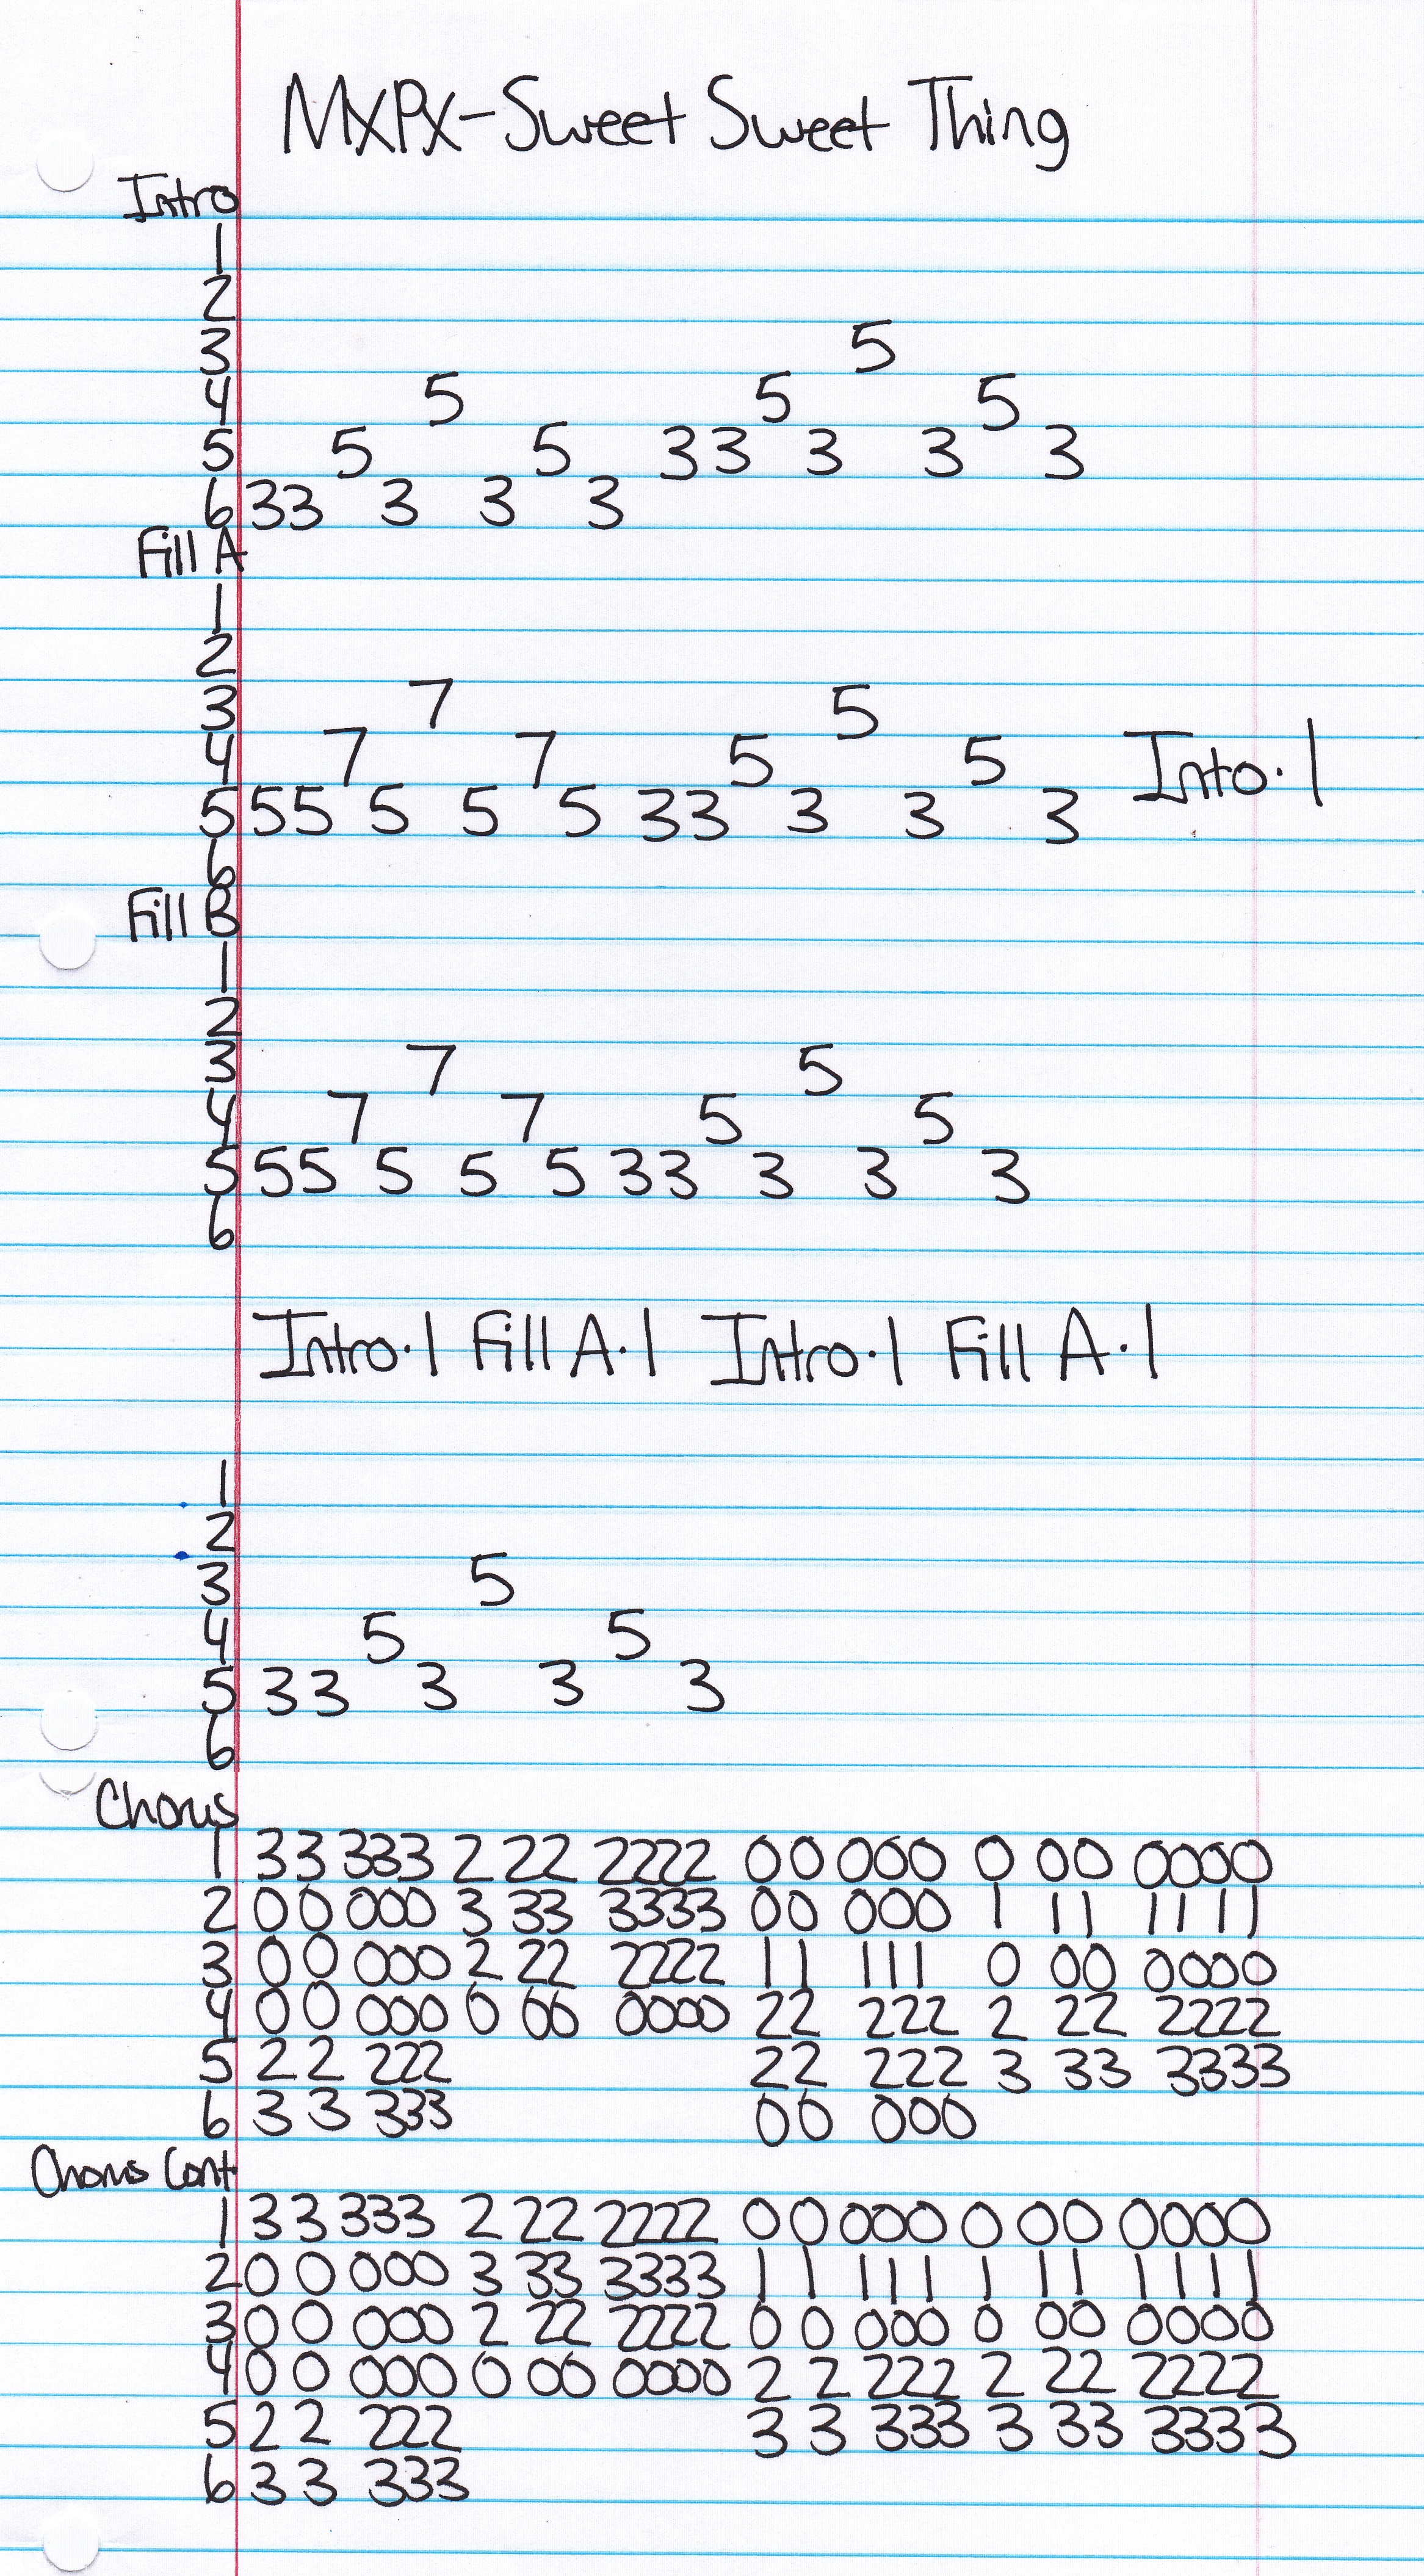 MXPX-Sweet Sweet Thing
Intro
1
2
3 5
4 5 5 5
5 5 5 33 3 3 3
6 33 3 3 3
Fill A
1
2
3 7 5
4 7 7 5 5 Into·1
5 55 5 5 5 33 3 3 3
6
Fill B
1
2
3 7 5
4 7 7 5 5
5 55 5 5 5 33 3 3 3
6
Intro·1 Fill A·1 Intro·1 Fill A·1
1
2
3 5
4 5 5
5 33 3 3 3
6
Chorus
1 33 333 2 22 2222 00 000 0 00 0000
2 00 000 3 33 3333 00 000 1 11 1111
3 00 000 2 22 2222 11 111 0 00 0000
4 00 000 0 00 0000 22 222 2 22 2222
5 22 222 22 222 3 33 3333
6 3 3 333 00 000
Chorus Cont
1 33 333 2 22 2222 00 000 0 00 0000
2 0 0 000 3 33 3333 1 1 111 1 11 1111
3 0 0 000 2 22 2222 0 0 000 0 00 0000
4 0 0 000 0 00 0000 2 2 222 2 22 2222
5 22 222 3 3 333 3 33 3333
6 33 333